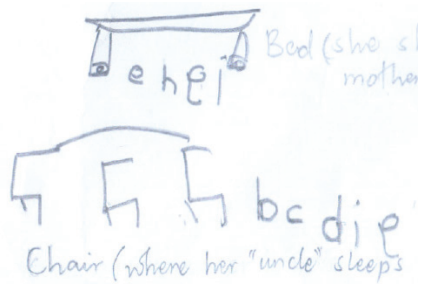 Bed (she sl
mothe
e h e i
b c d i e
Chair (where her "uncle" sleeps